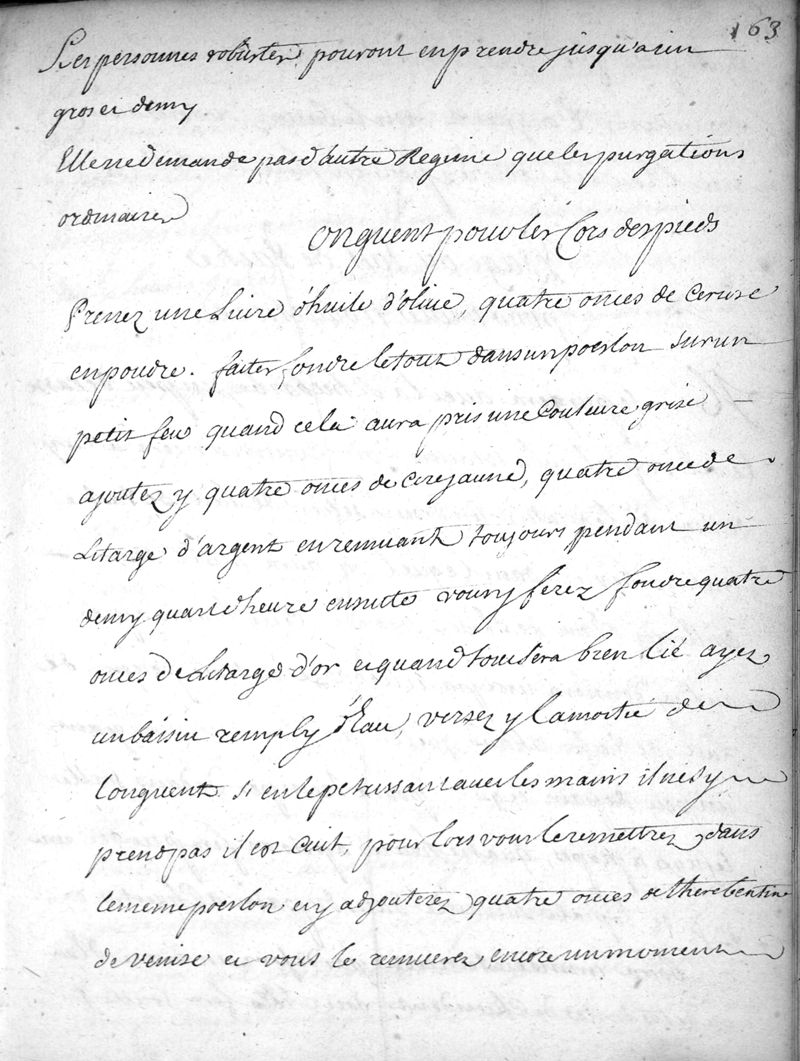 163
Les personnes robustes pouront en prendre jusqu'a un
gros et demy
Elle ne demande pas d'autre Regime que les purgations
ordinaires
Onguent pour les Cors des pieds
Prenez une Livre d'huile d'olive quatre onces de ceruse
en poudre. faites fondre le tout dans un poeslon sur un
petit feu quand cela aura pris une Couleure grise
ajoutez y quatre onces de cire jaune, quatre once de
Litarge d'argent en remuant toujours pendant un
demy quart d'heure ensuitte vous y ferez fondre quatre
onces de Litarge d'or et quand tout sera bien lié ayez
un bassin remply d'Eau, versez y la moitié de
l'onguent si en le petrissant avec les mains il ne s'y
prend pas il est cuit, pour lors vous le remettrez dans
le meme poeslon et y adjouterez quatre onces de therebentine
de venise et vous le remuerez encore un moment